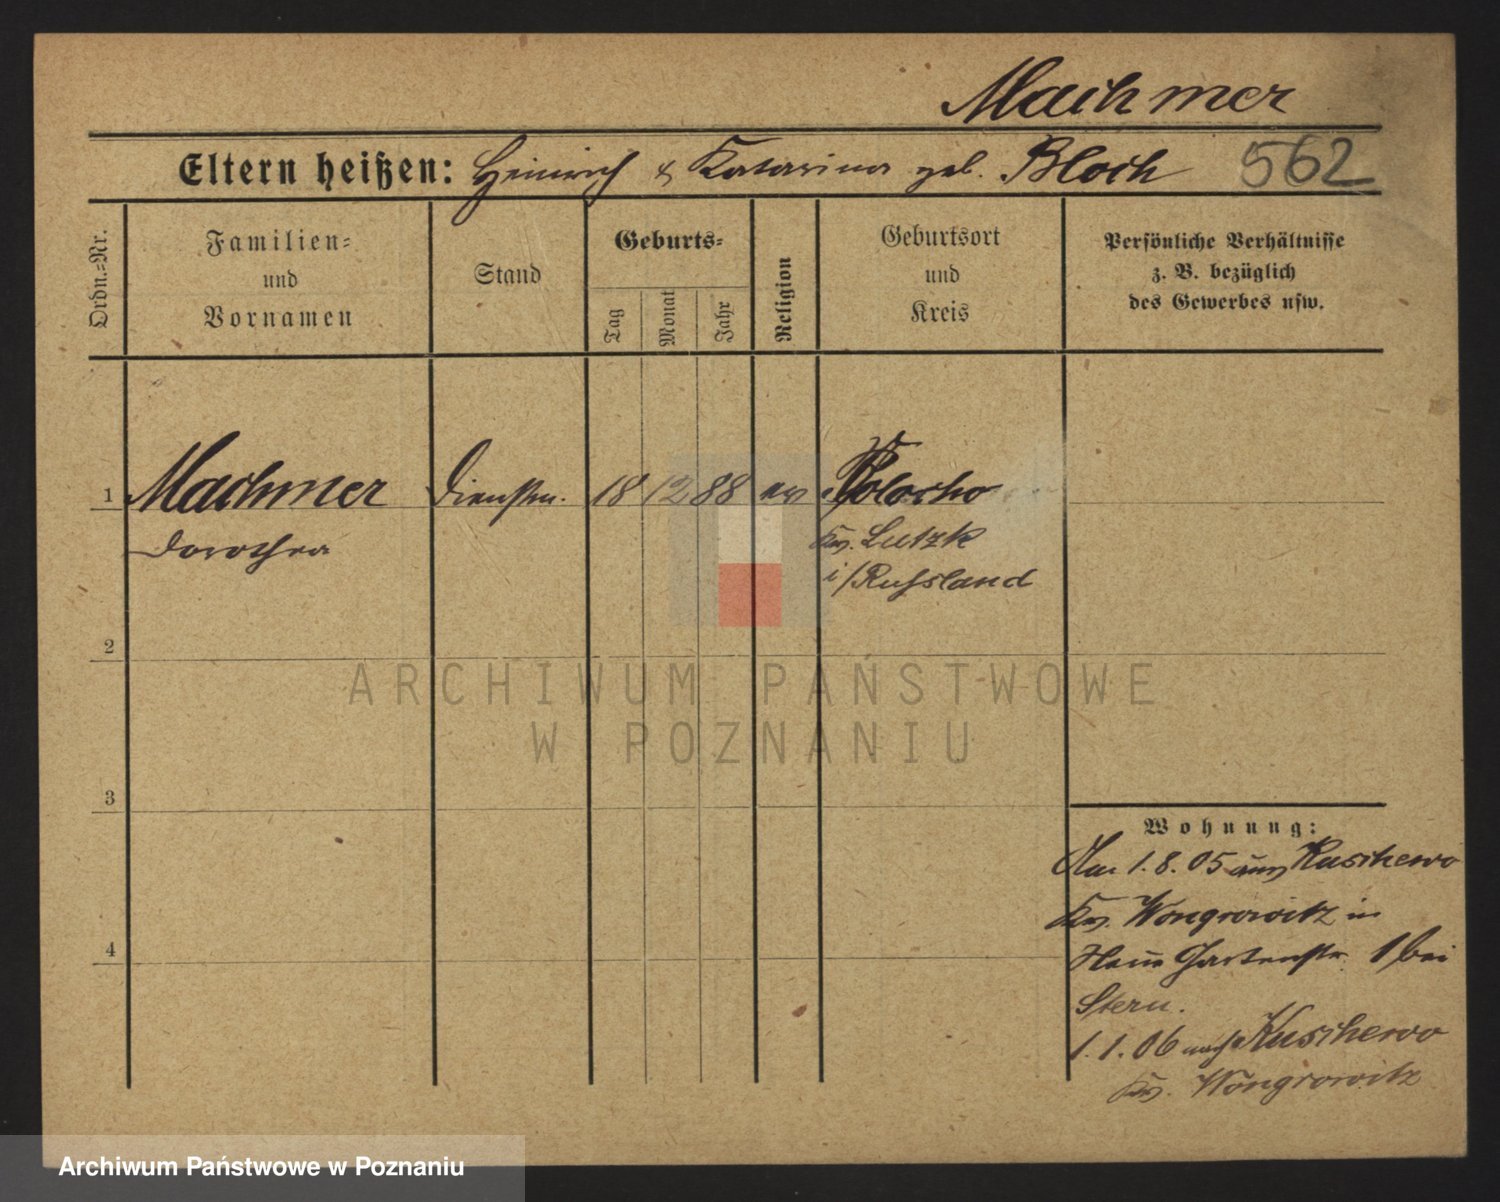 Machmer
Eltern heißen: Heinrich & Katarina geb. Bloch 562
Ordn.-Nr.
Familien-
und
Vornamen
Stand
Geburts-
Tag
Monat
Jahr
Religion
Geburtsort
und
Kreis
Persönliche Verhältnisse
z. B. bezüglich
des Gewerbes usw.
1 Machmer Dienstm. 18 12 88 ev
Dorothea Kr. Lutzk
i/Russland
2
ARCHIWUM PAŃSTWOWE
W POZNANIU
3
4
Wohnung:
1.8.05 aus Kuschewo
Kr. Wongrowitz in
Gartenstr. 1 bei
Stern.
1.1.06 nach Kuschewo
Kr. Wongrowitz
Archiwum Państwowe w Poznaniu